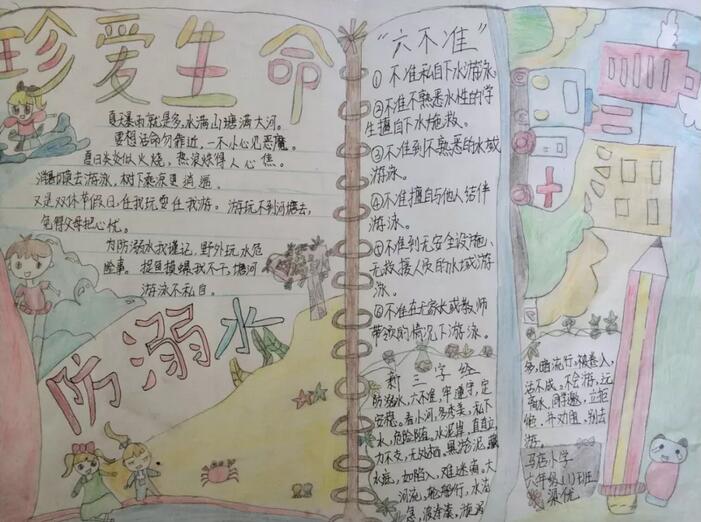 珍爱生命
夏天暴雨就是多,水满山塘满大河。
要想活命勿靠近,一不小心见恶魔。
夏日炎炎似火烧,热浪烤得人心焦。
去游泳,树下乘凉更逍遥。
又是双休节假日,任我玩耍任我游。游玩不到河塘去,
免得父母把心忧。
为防溺水我谨记,野外玩水危
险事。捉鱼摸螺我不干,塘河
游泳不私自。
防溺水
"六不准"
①不准私自下水游泳
②不准不熟悉水性的学
生擅自下水施救。
③不准到不熟悉的水域
游泳。
④不准擅自与他人结伴
游泳。
不准到无安全设施、
无救援人员的水域游
泳。
⑥不准在无家长或教师
带领的情况下游泳。
新三字经
防溺水,六不准,牢遵守,定
安稳。看小河,多秀美,私下
水,危险随。水泥岸,直直立,
力不支,无处
如陷入,难逃
河流,
急,
多,暗流行,被卷入,
活不成。不会游,远
离水,同学邀,立拒
绝,并劝阻,别去
游。
马店小学
六年级(1)班
梁优